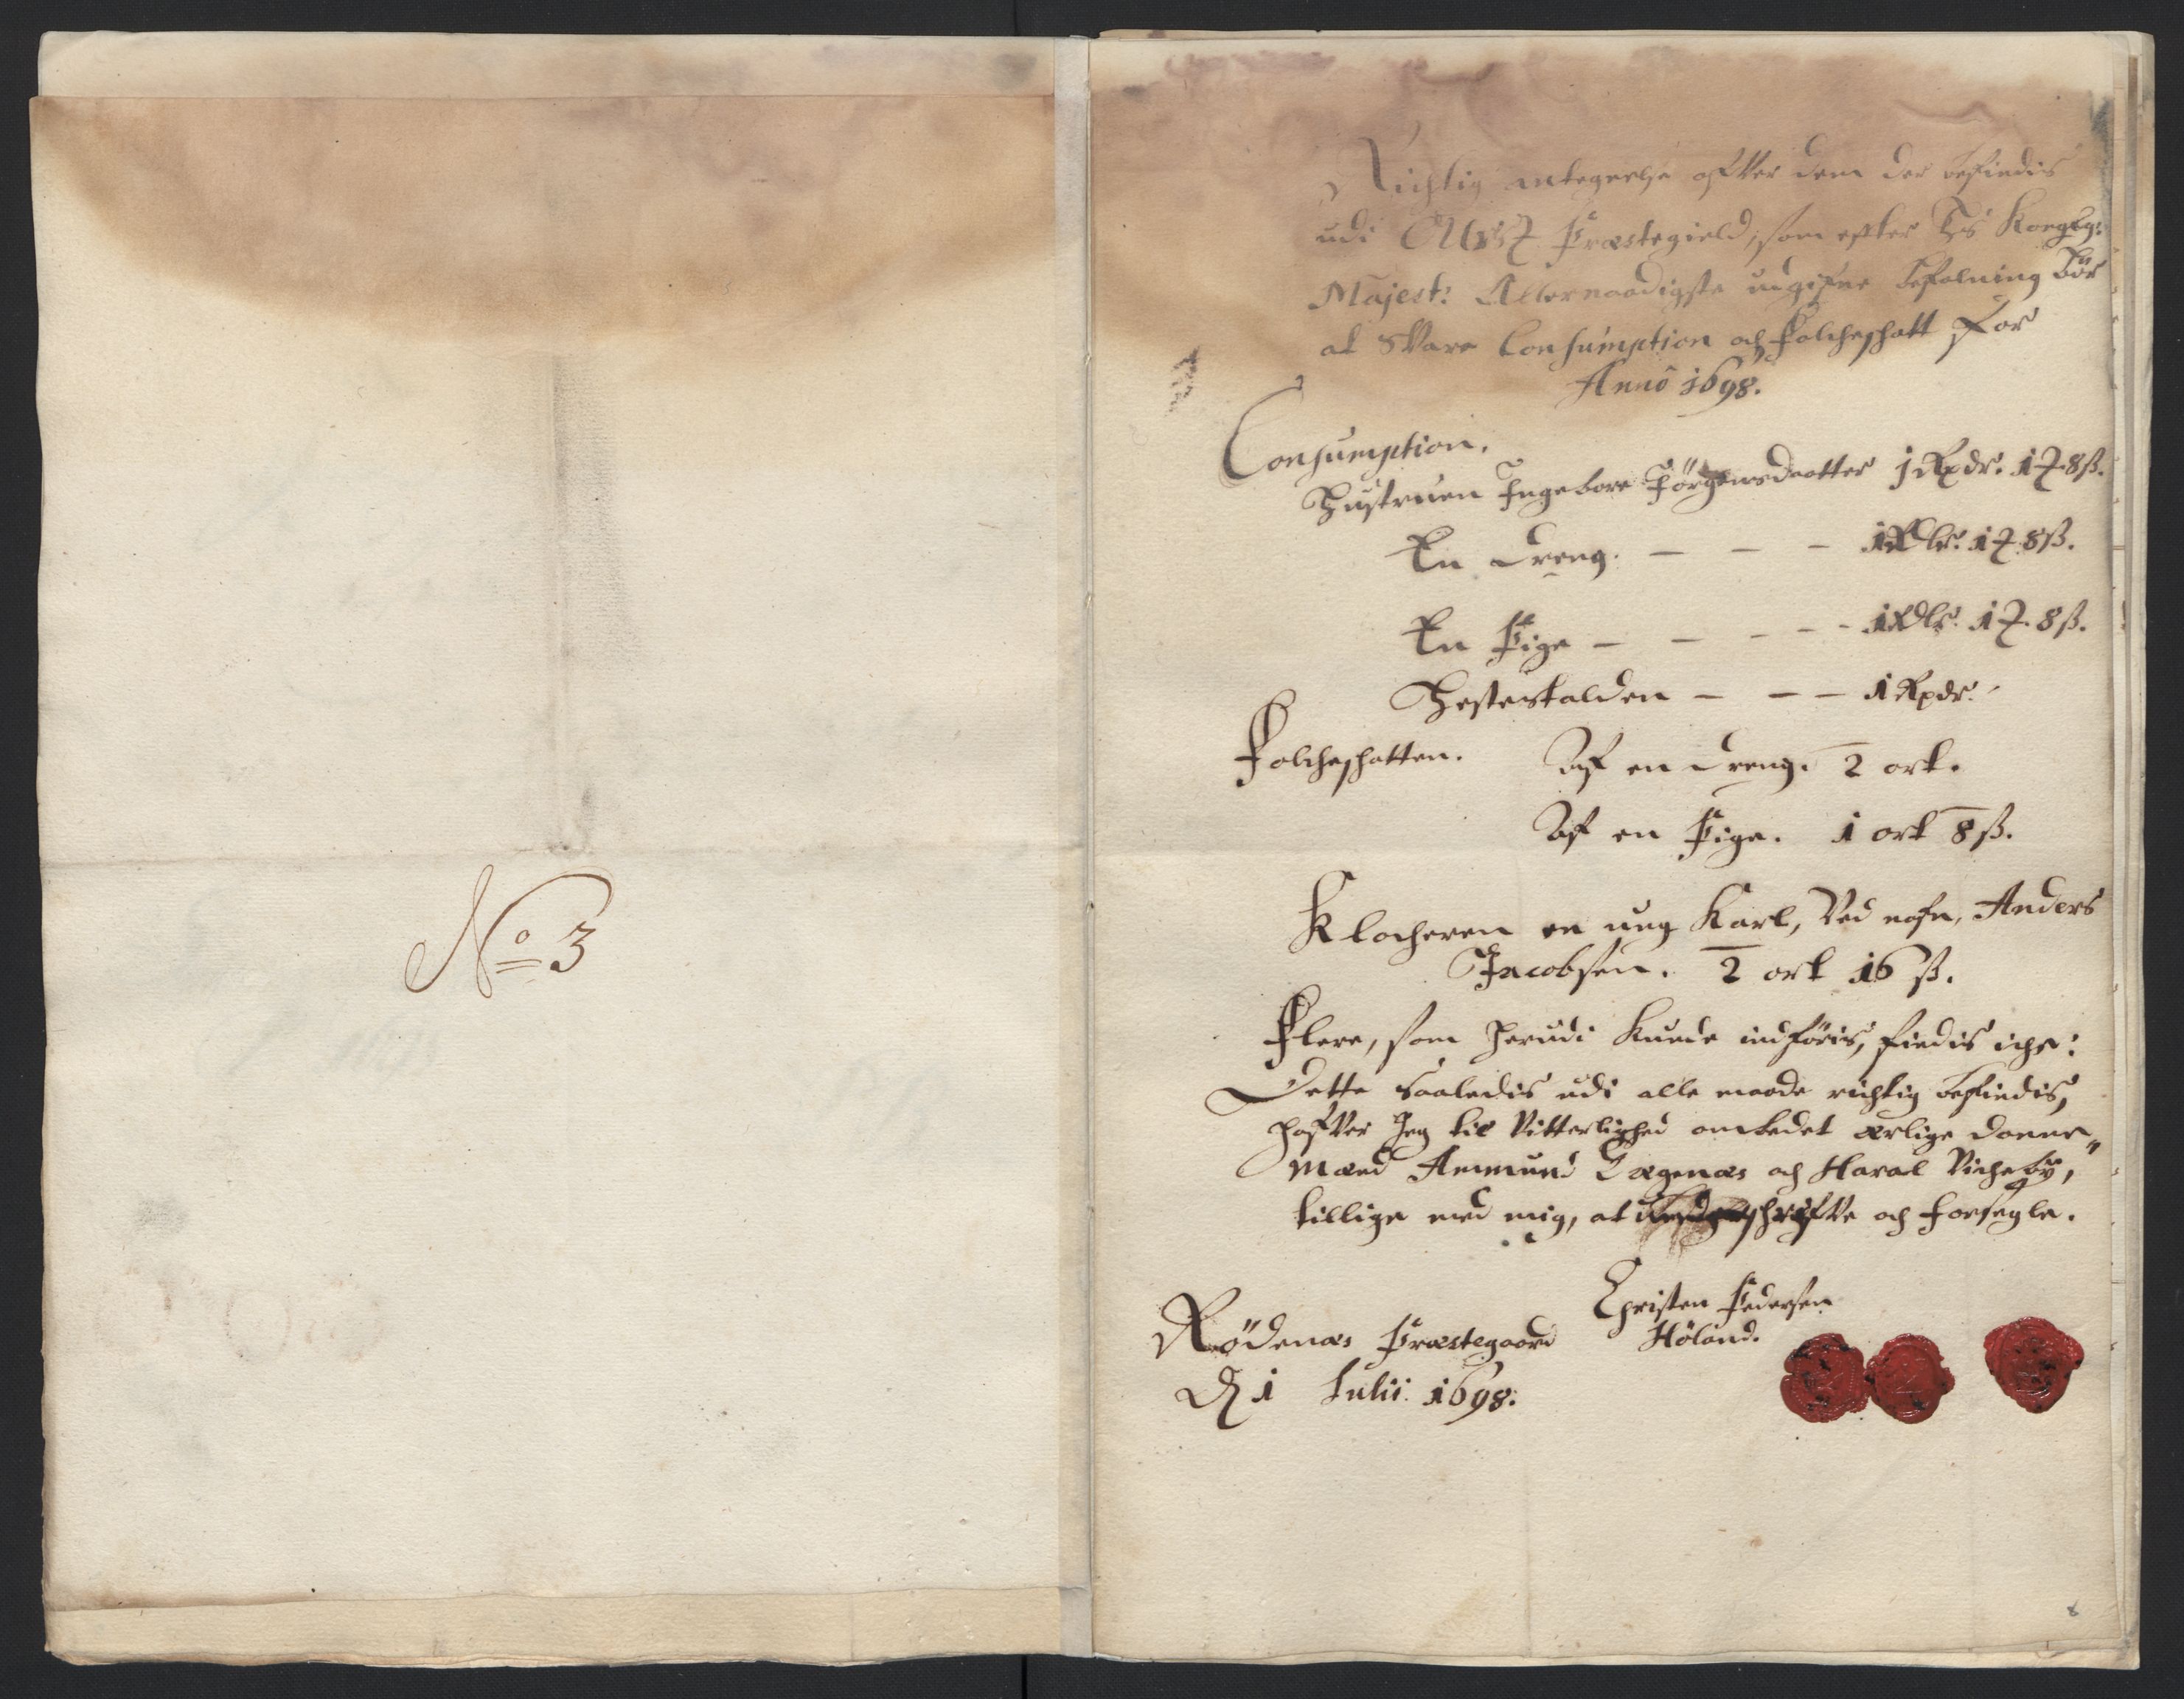 No 3
Richtig antegnelse ofver dem der befindis
udi Præstegield, som efter Hs Kongelg:
Majest: Allernaadigste udgifne befalning bör
at svare Consumption och folcheschatt for
Anno 1698.
Consumption.
Hustruen Ingebore Jörgensdaatter 1 Rixdr. 1 8 ß.
En dreng. — — — 1 Rdlr. 1 8 ß.
En Pige — — - - - 1 Rdlr. 1 8 ß.
Hestestalden — — — 1 Rixdr.
Folcheschatten. Af en dreng. 2 ort.
Af en Pige. 1 ort 8 ß.
Klocheren en ung Karl, ved nafn, Anders
Jacobsen. 2 ort 16 ß.
Flere, som herudi kunde indföris, findis iche:
Dette saaledis udi alle maade richtig befindis,
hafver Jeg til vitterlighed ombedet ærlige danne
mænd Ammund och Haral Vicheby,
tillige med mig, at underschrifve och forsegle.
Christen Pedersen
Rödenæs Præstegaard Höland.
D 1 Julii 1698.